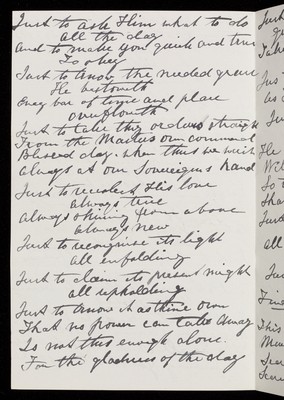 Just to ask Him what to do
All the day
And to make you quick and true
To obey
Just to know the needed grace
He bestoweth
Every bar of time and place
overfloweth
Just to take thy orders straight
From the Master's own command
Blessed day! when thus we wait
Always at our Sovereign's hand
Just to recollect His love
Always true
Always shining from above
Always new
Just to recognise its light
All enfolding
Just to claim its present might
All upholding
Just to know it as thine own
That no power can take away
Is not this enough alone
For the gladness of the day
Just
Take
Jus
He
Wil
So
Just
all
Jus
This